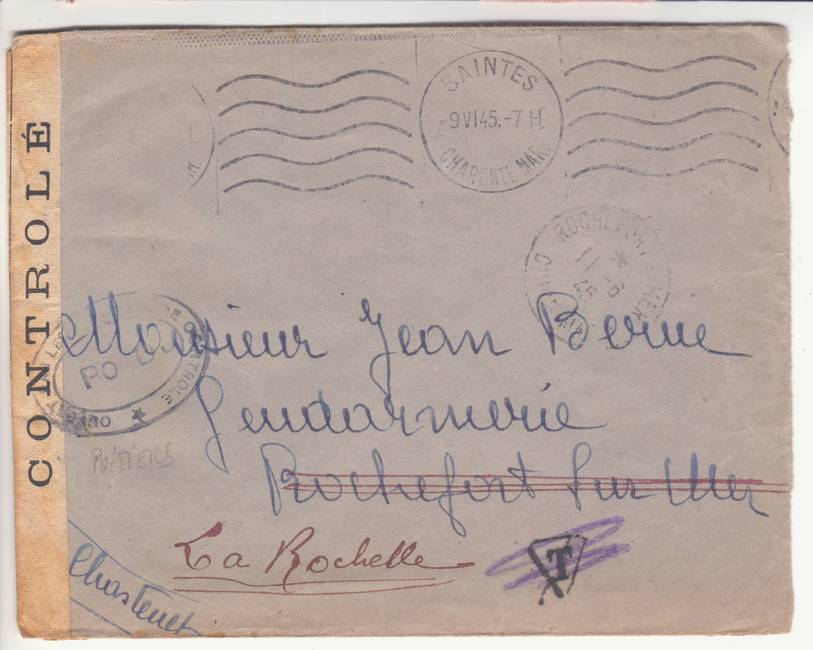 SAINTES
-9 VI 45.-7 H.
CHARENTE MAR.
ROCHEFORT S MER
11 - 6
45
CONTROLÉ
OUVERT
CONTROLE
PO
Monsieur Jean Berne
Gendarmerie
Rochefort Sur Mer
Poitiers
La Rochelle
T
Chastenet